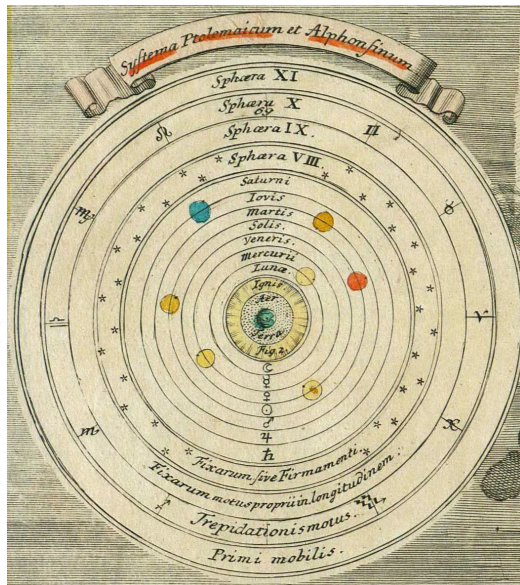 Systema Ptolemaicum et Alphonsinum
Sphæra XI
Sphæra X
♋
Sphæra IX.
♌ ♊
Sphæra VIII.
Saturni
Iovis
Martis
Solis.
Veneris.
Mercurii
Lunæ.
Ignis
Aer.
Terra
Fig. 2.
♍ ♉
♎ ♈
♏ ♓
☾
☿
♀
☉
♂
♃
♄
Fixarum sive Firmamenti.
Fixarum motus proprii in longitudinem:
♐
Trepidationis motus.
Primi mobilis.